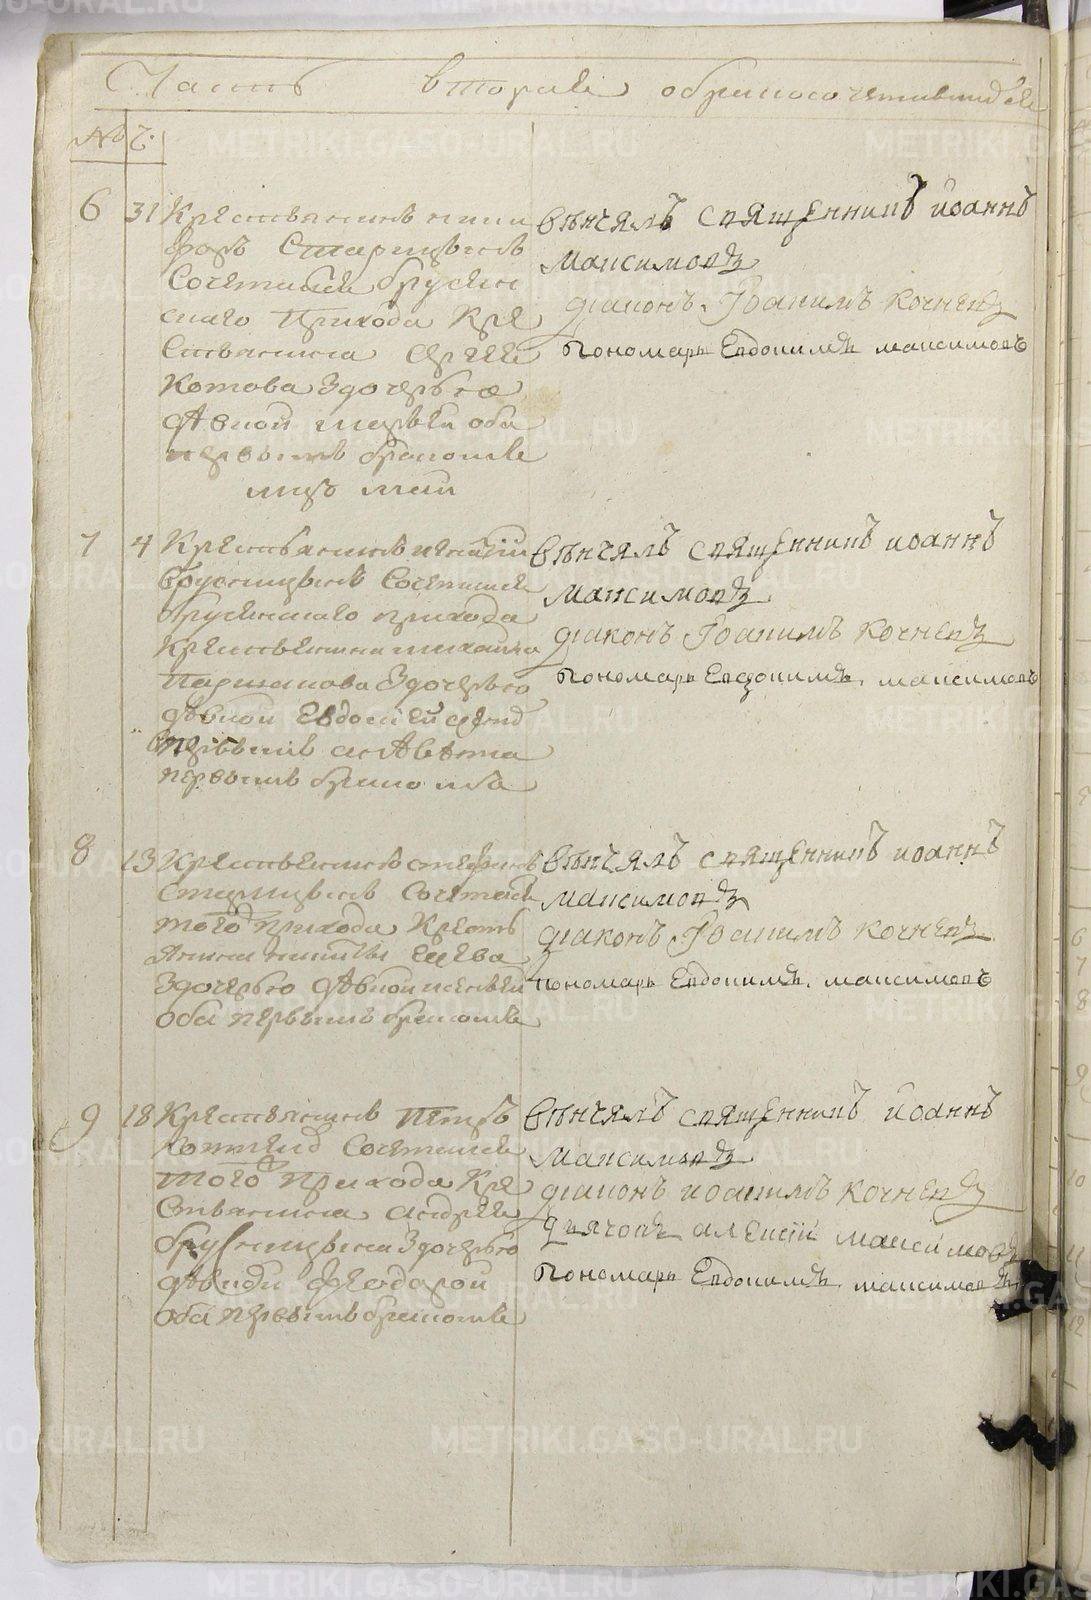 Часть вторая о бракосочетавшихся
№ Ч:
6 31 Крестьянинъ ники
форъ Старицынъ
Сочетался брусян
скаго Прихода Кре
стьянина Сергея
Котова Здочерью
дѣвкой оба
первымъ бракомъ
мцъ маи
Вѣнчалъ священникъ иоаннъ
максимовъ
диаконъ Iоакимъ кочневъ
Пономарь Евдокимъ максимовъ
7 4 Крестьянинъ игнатiй
брусницынъ Сочетался
брусянскаго прихода
Крестьянина михаила
Здочерью
дѣвкой Евдокiей
первымъ
первымъ бракомъ
Вѣнчалъ священникъ иоаннъ
максимовъ
диаконъ Iоакимъ кочневъ
Пономарь Евдокимъ максимовъ
8 13 Крестьянинъ стефанъ
Старицынъ Сочетался
того прихода Кресть
янина никиты
Здочерью дѣвкой
оба первымъ бракомъ
вѣнчалъ священникъ иоаннъ
максимовъ
диаконъ Iоакимъ кочневъ
пономарь Евдокимъ максимовъ
9 18 Крестьянинъ Петръ
Сочетался
того Прихода Кре
стьянина андрея
брусницына Здочерью
Феодорой
оба первымъ бракомъ
Вѣнчалъ священникъ иоаннъ
максимовъ
диаконъ иоакимъ кочневъ
дьячокъ алексiй максимовъ
Пономарь Евдокимъ максимовъ
METRIKI.GASO-URAL.RU